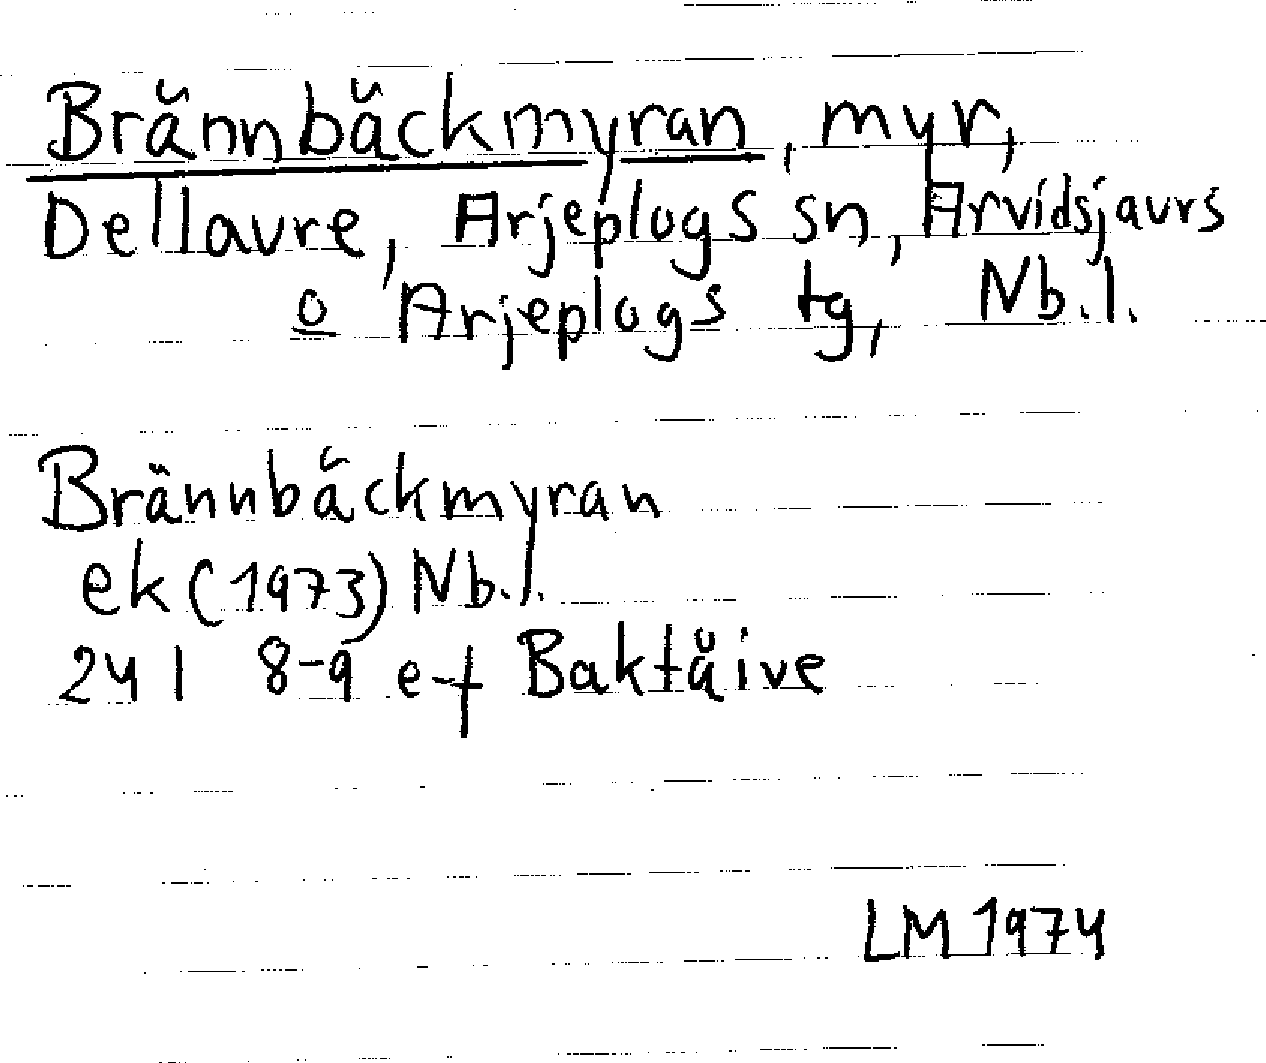 Brännbäckmyran, myr,
Dellaure, Arjeplogs sn, Arvidsjaurs
o Arjeplogs tg, Nb.l.
Brännbäckmyran
ek (1973) Nb.l.
24 I 8-9 e-f Baktåive
LM 1974